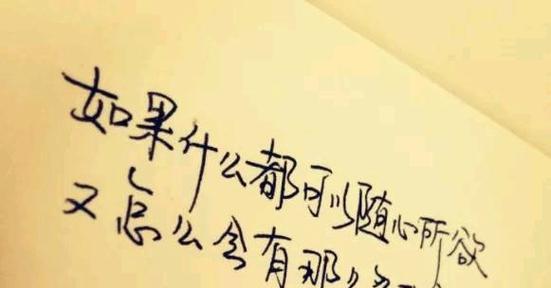 如果什么都可以随心所欲
又怎么会有那么